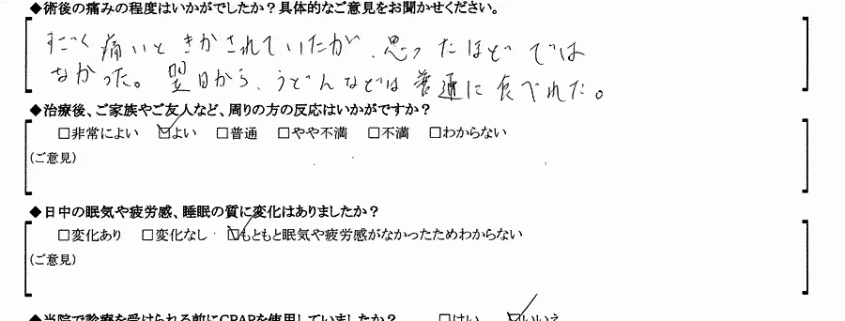 ◆術後の痛みの程度はいかがでしたか？具体的なご意見をお聞かせください。
すごく痛いときかされていたが、思ったほどでは
なかった。翌日から、うどんなどは普通に食べれた。
◆治療後、ご家族やご友人など、周りの方の反応はいかがですか？
□非常によい ☑よい □普通 □やや不満 □不満 □わからない
(ご意見)
◆日中の眠気や疲労感、睡眠の質に変化はありましたか？
□変化あり □変化なし ☑もともと眠気や疲労感がなかったためわからない
(ご意見)
◆当院で診療を受けられる前にCPAPを使用していましたか？ □はい ☑いいえ